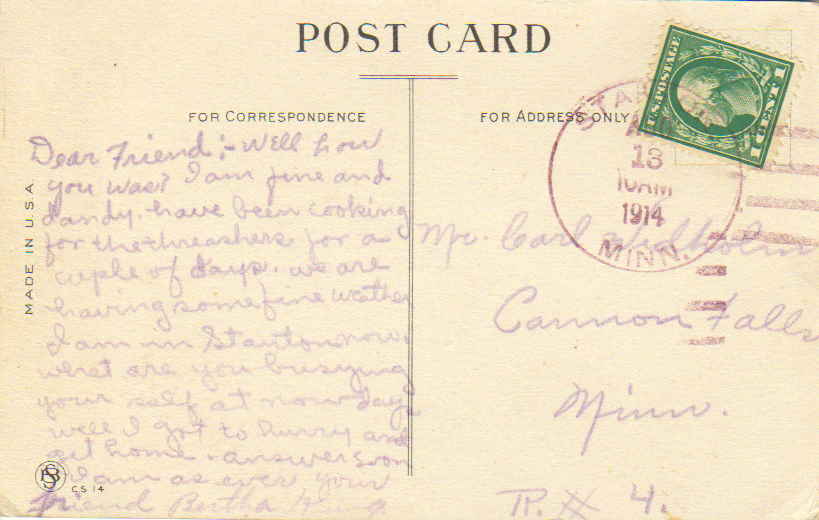 POST CARD
FOR CORRESPONDENCE
FOR ADDRESS ONLY
MADE IN U.S.A.
Dear Friend:- Well how
you was? I am fine and
dandy. have been cooking
for the threashers for a
cuple of days. we are
having some fine weather
I am in Stanton now.
what are you busying
your self at now days
well I got to hurry and
get home. answer soon
I am as ever your
friend Bertha
C S 14
U.S. POSTAGE
1 CENT 1
STA
13
10AM
1914
MINN.
Mr. Carl
Cannon Falls
Minn.
R. # 4.